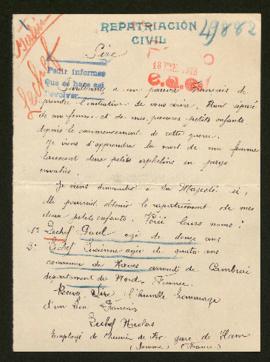 REPATRIACIÓN
CIVIL
49882
Sire
Pedir informes
que se hace así
devolver.
18 1918
Permettez à un pauvre Français de
prendre l'initiative de vous écrire. Étant séparé
de ma femme et de mes pauvres petits enfants
depuis le commencement de cette guerre.
Je viens d'apprendre la mort de ma femme
laissant deux petits orphelins en pays
envahis.
Je viens demander à Sa Majesté si
Elle pourrait obtenir le rapatriement de mes
deux petits enfants. Voici leurs noms :
1° Lechef Paul agé de douze ans
2° Lechef agé de quatre ans
commune de arrondt de Cambrai
département du Nord, France.
Sire l'humble hommage
d'un bon Français
Lechef Nicolas
Employé de chemin de Fer gare de Ham
(Somme) (France)